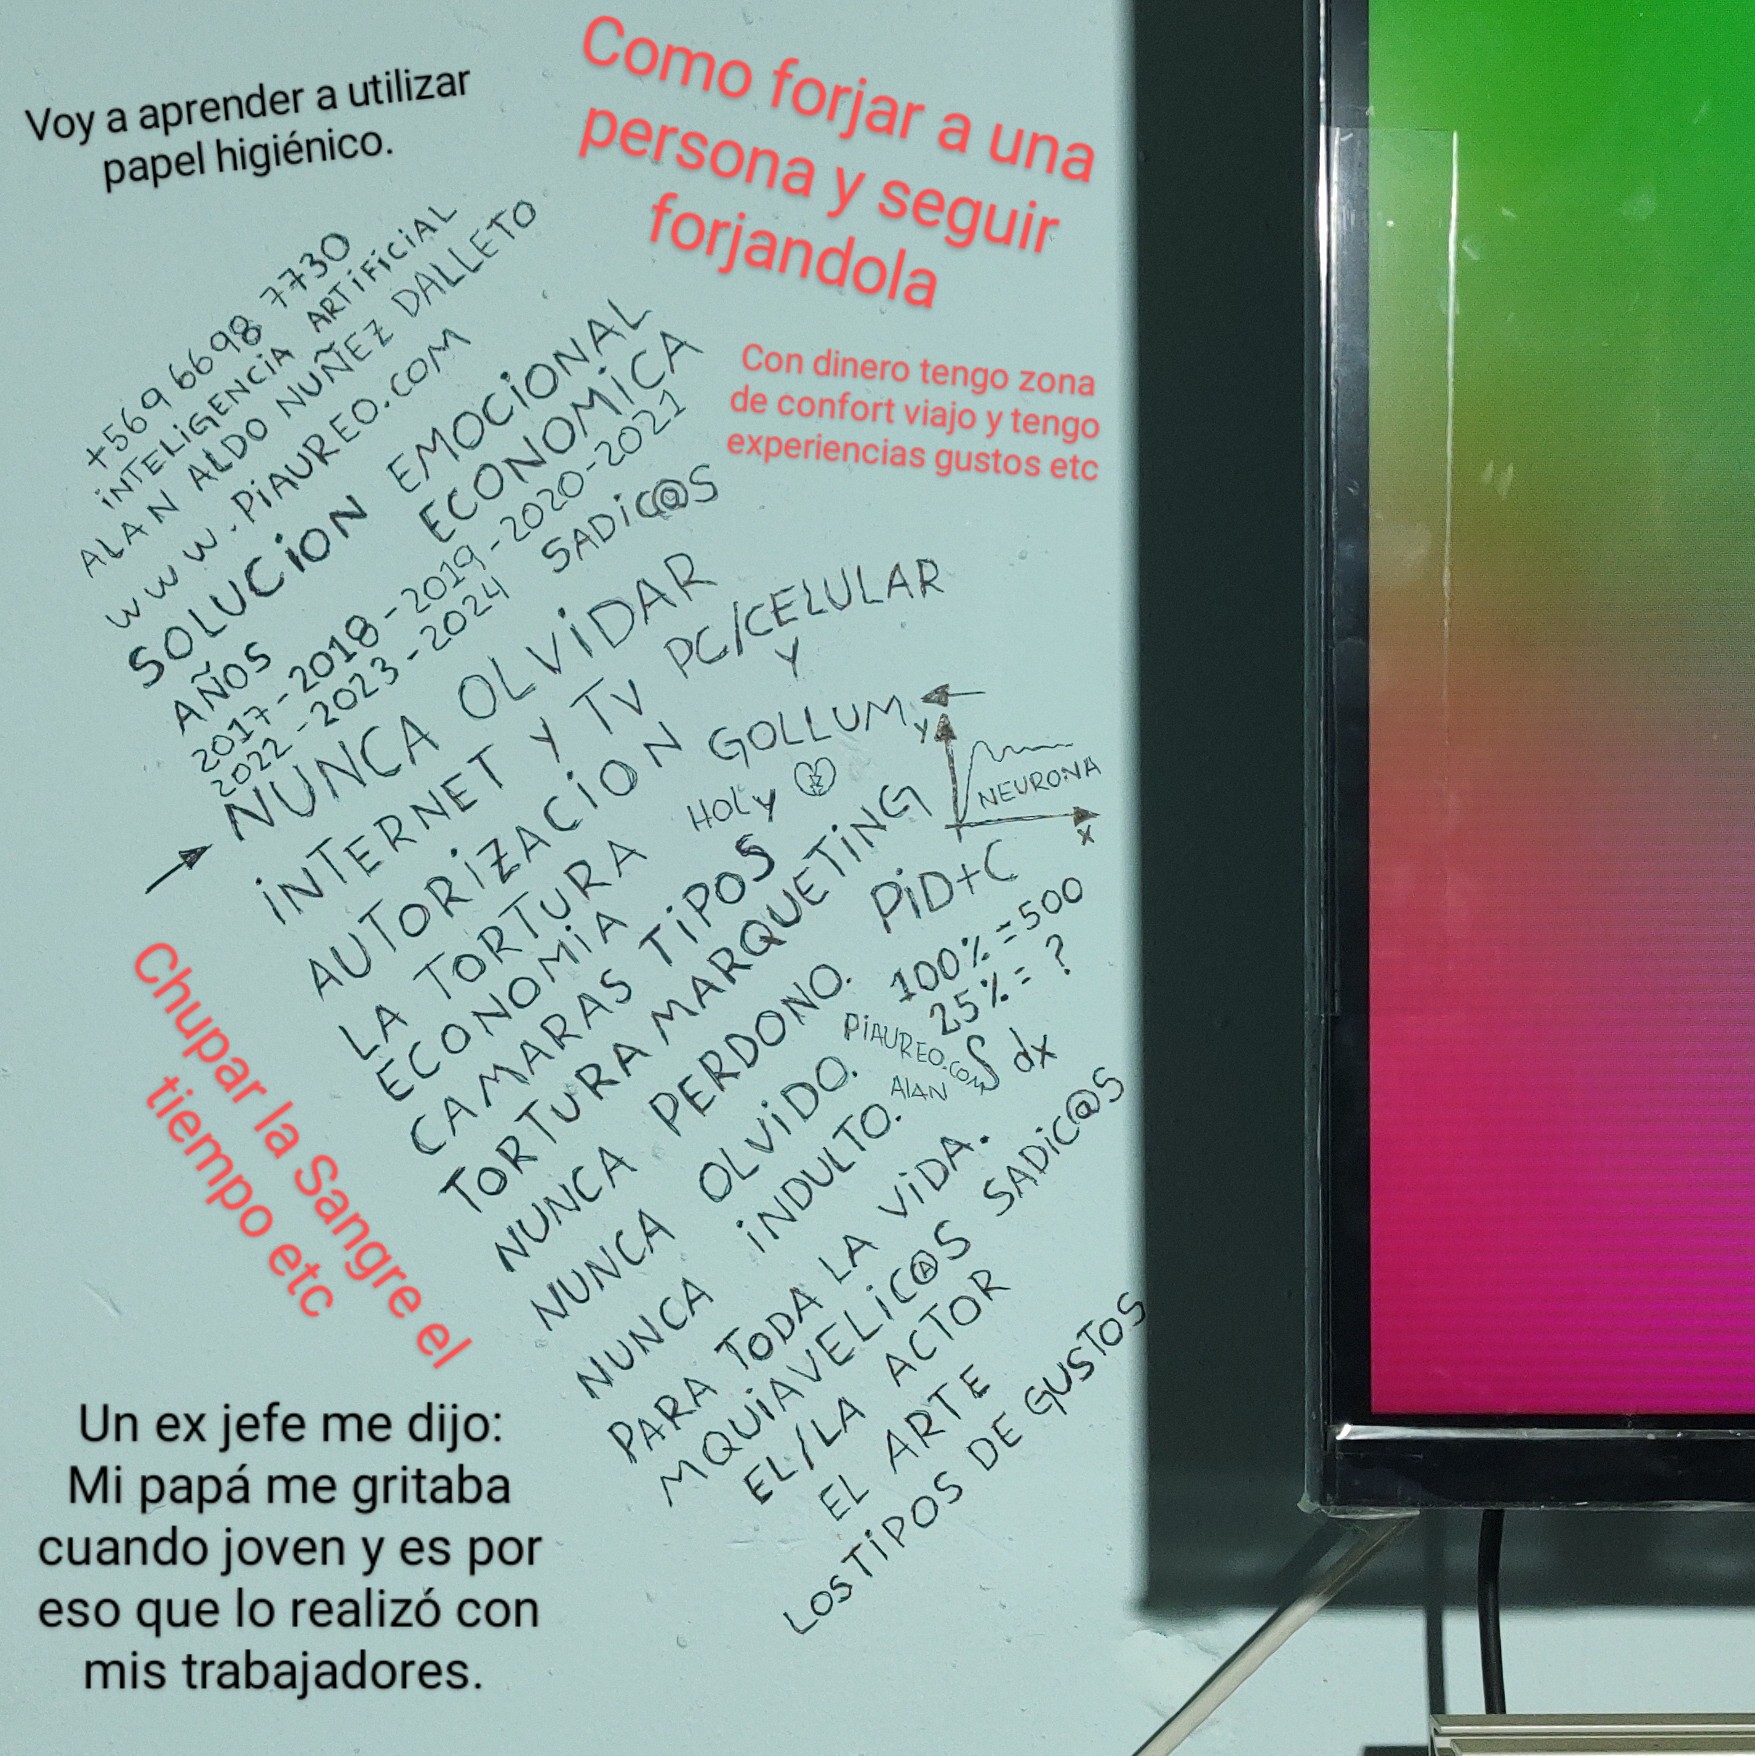 Voy a aprender a utilizar
papel higiénico.
Como forjar a una
persona y seguir
forjandola
Con dinero tengo zona
de confort viajo y tengo
experiencias gustos etc
+569 6698 7730
iNTELiGENCiA ARTiFiCiAL
ALAN ALDO NUÑEZ DALLETO
WWW.PiAUREO.COM
SOLUCiON EMOCiONAL
ECONOMiCA
AÑOS
2017-2018-2019-2020-2021
2022-2023-2024 SADiC@S
NUNCA OLViDAR
iNTERNET Y TV PC/CELULAR
Y
AUTORiZACiON GOLLUM
LA TORTURA HOLY
ECONOMiA
CAMARAS TiPOS
TORTURA MARQUETiNG
Y
NEURONA
X
NUNCA PERDONO. PiD+C
100%=500
25%=?
NUNCA OLViDO. PiAUREO.COM
ALAN
∫ dx
NUNCA iNDULTO.
PARA TODA LA ViDA.
MQUiAVELiC@S SADiC@S
EL/LA ACTOR
EL ARTE
LOS TiPOS DE GUSTOS
Chupar la Sangre el
tiempo etc
Un ex jefe me dijo:
Mi papá me gritaba
cuando joven y es por
eso que lo realizó con
mis trabajadores.